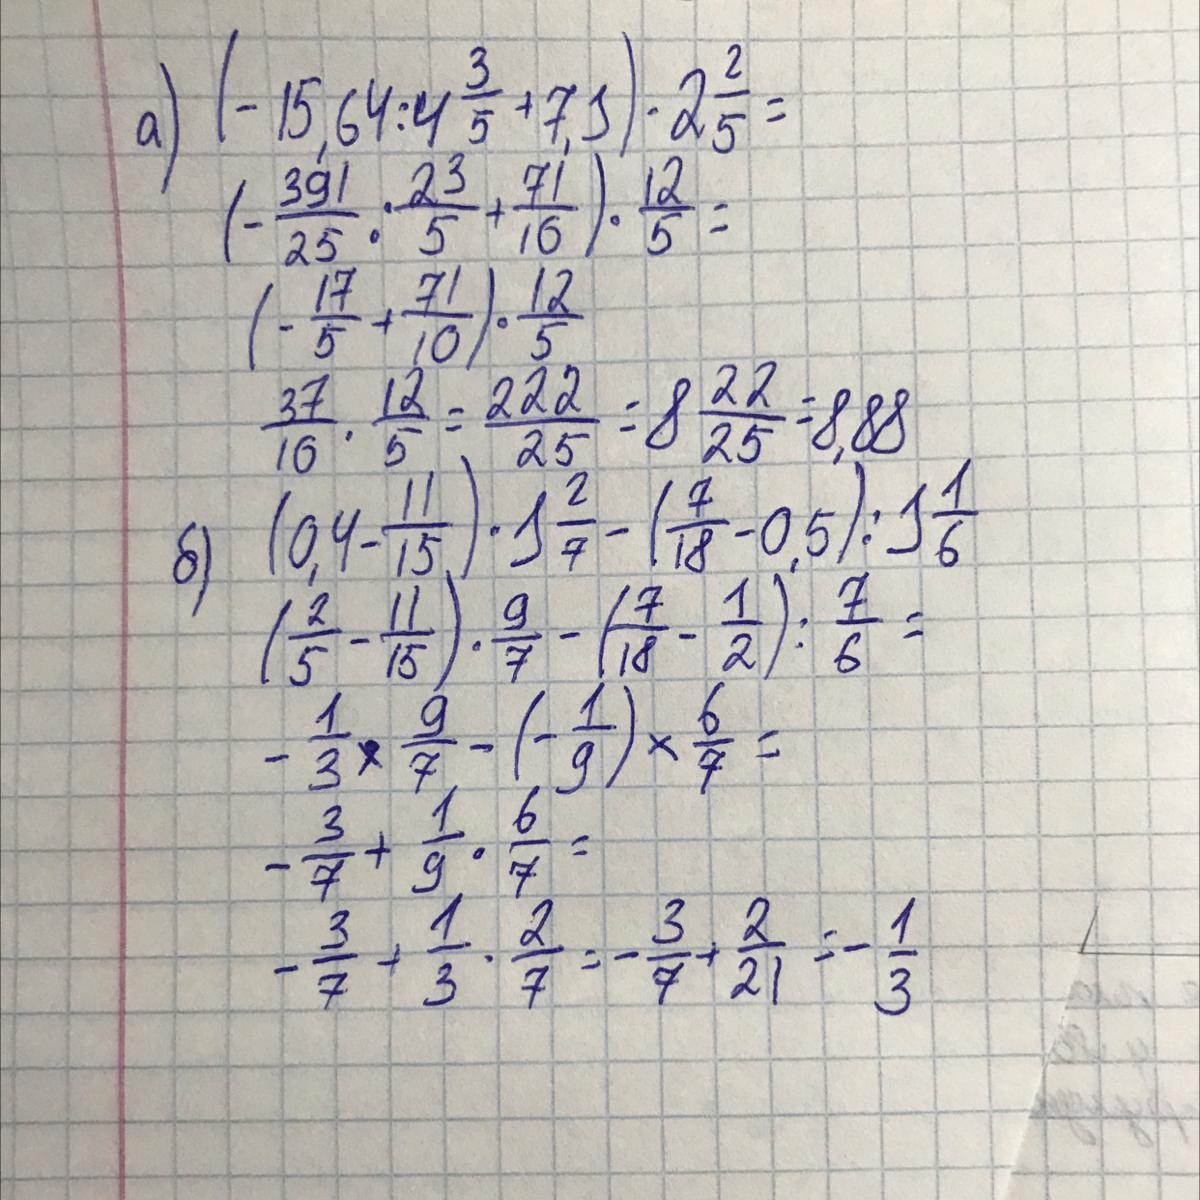 а) (-15,64:4 3/5 + 7,1) · 2 2/5 =
(- 391/25 : 23/5 + 71/10) · 12/5 =
(- 17/5 + 71/10) · 12/5
37/10 · 12/5 = 222/25 = 8 22/25 = 8,88
б) (0,4 - 11/15) · 1 2/7 - (7/18 - 0,5) : 1 1/6
(2/5 - 11/15) · 9/7 - (7/18 - 1/2) : 7/6 =
- 1/3 × 9/7 - (- 1/9) × 6/7 =
- 3/7 + 1/9 · 6/7 =
- 3/7 + 1/3 · 2/7 = - 3/7 + 2/21 = - 1/3